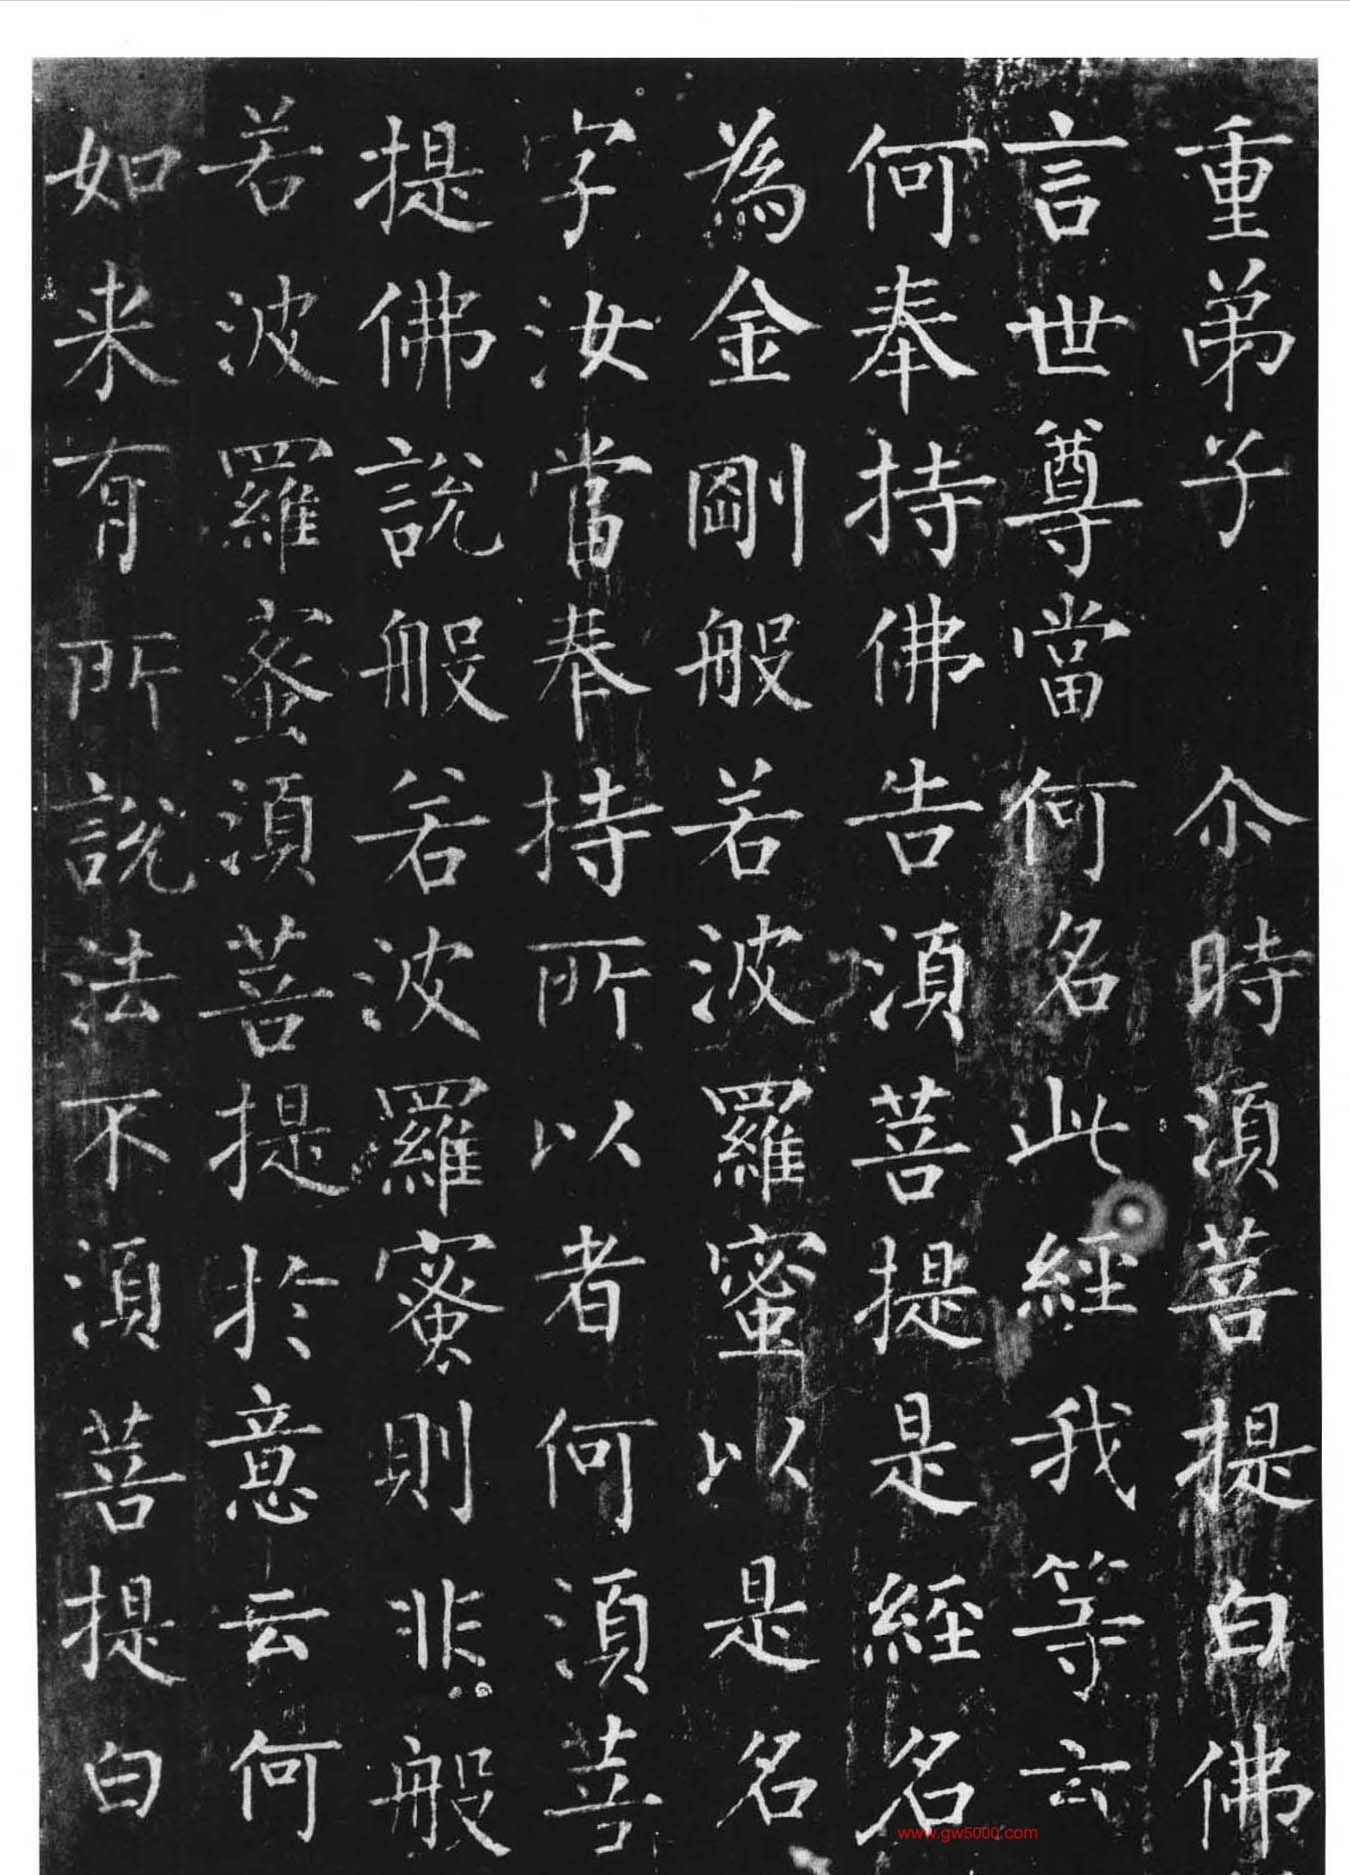 重弟子 尒時須菩提白佛
言世尊當何名此經我等云
何奉持佛告須菩提是經名
為金剛般若波羅蜜以是名
字汝當奉持所以者何須菩
提佛說般若波羅蜜則非般
若波羅蜜須菩提於意云何
如来有所說法不須菩提白
www.gw5000.com